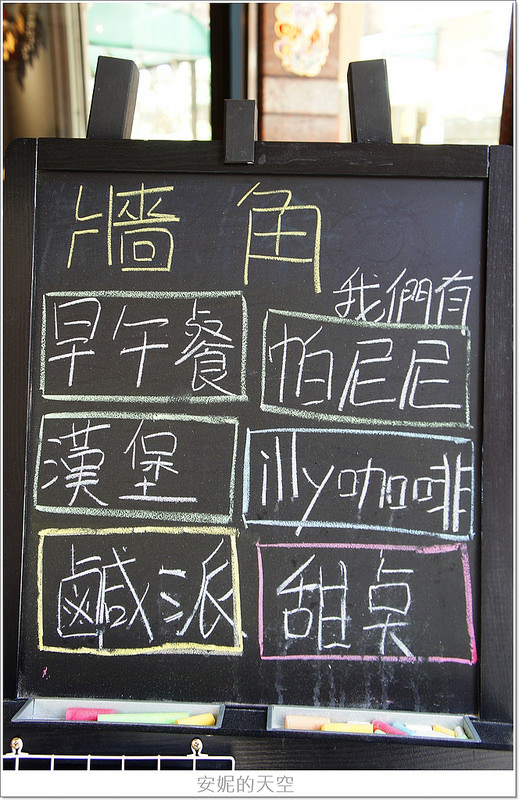 牆角
我們有
早午餐
帕尼尼
漢堡
illy咖啡
鹹派
甜桌
安妮的天空